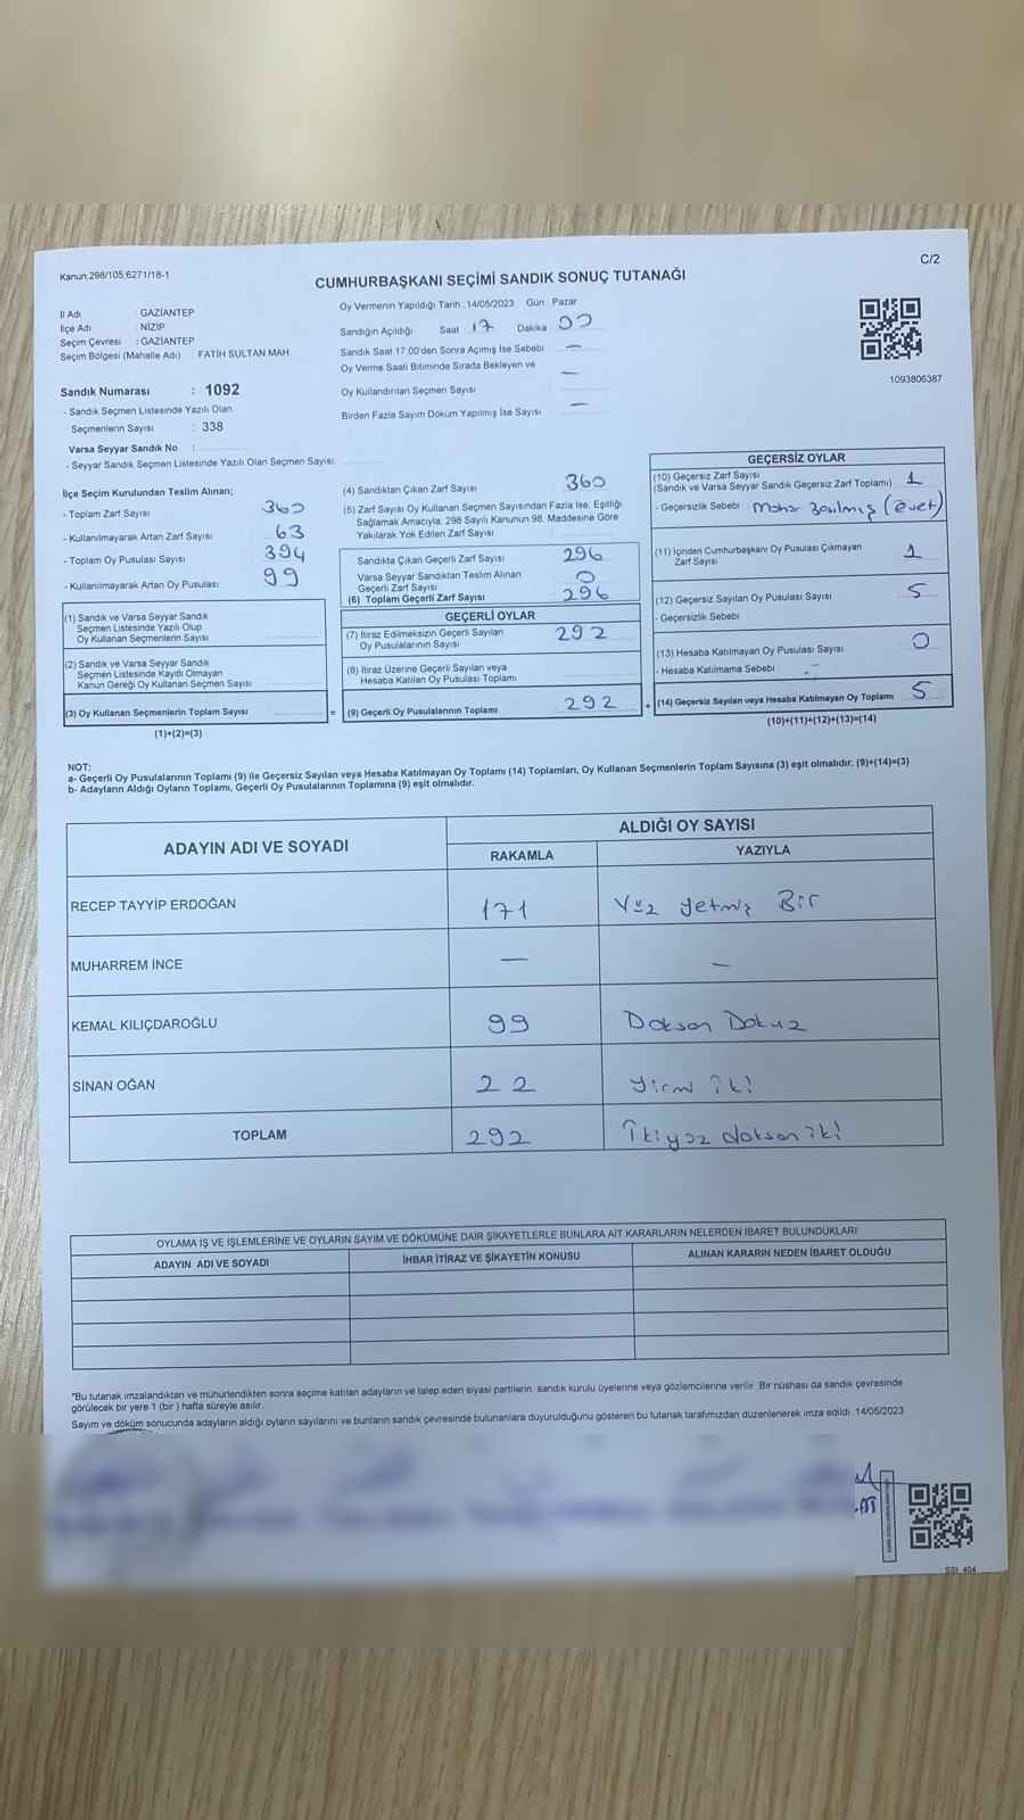 Kanun,298/105,6271/18-1
C/2
CUMHURBAŞKANI SEÇİMİ SANDIK SONUÇ TUTANAĞI
İl Adı GAZİANTEP
İlçe Adı NİZİP
Seçim Çevresi : GAZİANTEP
Seçim Bölgesi (Mahalle Adı) : FATİH SULTAN MAH.
Sandık Numarası : 1092
- Sandık Seçmen Listesinde Yazılı Olan
Seçmenlerin Sayısı : 338
Varsa Seyyar Sandık No :
- Seyyar Sandık Seçmen Listesinde Yazılı Olan Seçmen Sayısı:
Oy Vermenin Yapıldığı Tarih : 14/05/2023 Gün : Pazar
Sandığın Açıldığı Saat : 17 Dakika 00
Sandık Saat 17:00'den Sonra Açımış İse Sebebi —
Oy Verme Saati Bitiminde Sırada Bekleyen ve —
Oy Kullandırılan Seçmen Sayısı
Birden Fazla Sayım Döküm Yapılmış İse Sayısı —
1093806387
İlçe Seçim Kurulundan Teslim Alınan;
- Toplam Zarf Sayısı 360
- Kullanılmayarak Artan Zarf Sayısı 63
- Toplam Oy Pusulası Sayısı 394
- Kullanılmayarak Artan Oy Pusulası 99
(1) Sandık ve Varsa Seyyar Sandık
Seçmen Listesinde Yazılı Olup
Oy Kullanan Seçmenlerin Sayısı
(2) Sandık ve Varsa Seyyar Sandık
Seçmen Listesinde Kayıtlı Olmayan
Kanun Gereği Oy Kullanan Seçmen Sayısı
(3) Oy Kullanan Seçmenlerin Toplam Sayısı =
(1)+(2)=(3)
(4) Sandıktan Çıkan Zarf Sayısı 360
(5) Zarf Sayısı Oy Kullanan Seçmen Sayısından Fazla İse, Eşitliği
Sağlamak Amacıyla, 298 Sayılı Kanunun 98. Maddesine Göre
Yakılarak Yok Edilen Zarf Sayısı
Sandıkta Çıkan Geçerli Zarf Sayısı 296
Varsa Seyyar Sandıktan Teslim Alınan
Geçerli Zarf Sayısı 0
(6) Toplam Geçerli Zarf Sayısı 296
GEÇERLİ OYLAR
(7) İtiraz Edilmeksizin Geçerli Sayılan
Oy Pusulalarının Sayısı 292
(8) İtiraz Üzerine Geçerli Sayılan veya
Hesaba Katılan Oy Pusulası Toplamı
(9) Geçerli Oy Pusulalarının Toplamı 292 +
GEÇERSİZ OYLAR
(10) Geçersiz Zarf Sayısı 1
(Sandık ve Varsa Seyyar Sandık Geçersiz Zarf Toplamı)
- Geçersizlik Sebebi : Mühür Basılmış (Evet)
(11) İçinden Cumhurbaşkanı Oy Pusulası Çıkmayan
Zarf Sayısı 1
(12) Geçersiz Sayılan Oy Pusulası Sayısı 5
- Geçersizlik Sebebi :
(13) Hesaba Katılmayan Oy Pusulası Sayısı 0
- Hesaba Katılmama Sebebi : -
(14) Geçersiz Sayılan veya Hesaba Katılmayan Oy Toplamı 5
(10)+(11)+(12)+(13)=(14)
NOT:
a- Geçerli Oy Pusulalarının Toplamı (9) ile Geçersiz Sayılan veya Hesaba Katılmayan Oy Toplamı (14) Toplamları, Oy Kullanan Seçmenlerin Toplam Sayısına (3) eşit olmalıdır. (9)+(14)=(3)
b- Adayların Aldığı Oyların Toplamı, Geçerli Oy Pusulalarının Toplamına (9) eşit olmalıdır.
ADAYIN ADI VE SOYADI ALDIĞI OY SAYISI
RAKAMLA YAZIYLA
RECEP TAYYİP ERDOĞAN 171 Yüz yetmiş Bir
MUHARREM İNCE — —
KEMAL KILIÇDAROĞLU 99 Doksan Dokuz
SİNAN OĞAN 22 yirmi iki
TOPLAM 292 İkiyüz doksan iki
OYLAMA İŞ VE İŞLEMLERİNE VE OYLARIN SAYIM VE DÖKÜMÜNE DAİR ŞİKAYETLERLE BUNLARA AİT KARARLARIN NELERDEN İBARET BULUNDUKLARI
ADAYIN ADI VE SOYADI İHBAR İTİRAZ VE ŞİKAYETİN KONUSU ALINAN KARARIN NEDEN İBARET OLDUĞU
*Bu tutanak imzalandıktan ve mühürlendikten sonra seçime katılan adayların ve talep eden siyasi partilerin sandık kurulu üyelerine veya gözlemcilerine verilir. Bir nüshası da sandık çevresinde
görülecek bir yere 1 (bir) hafta süreyle asılır.
Sayım ve döküm sonucunda adayların aldığı oyların sayılarını ve bunların sandık çevresinde bulunanlara duyurulduğunu gösteren bu tutanak tarafımızdan düzenlenerek imza edildi. 14/05/2023
SSI_404